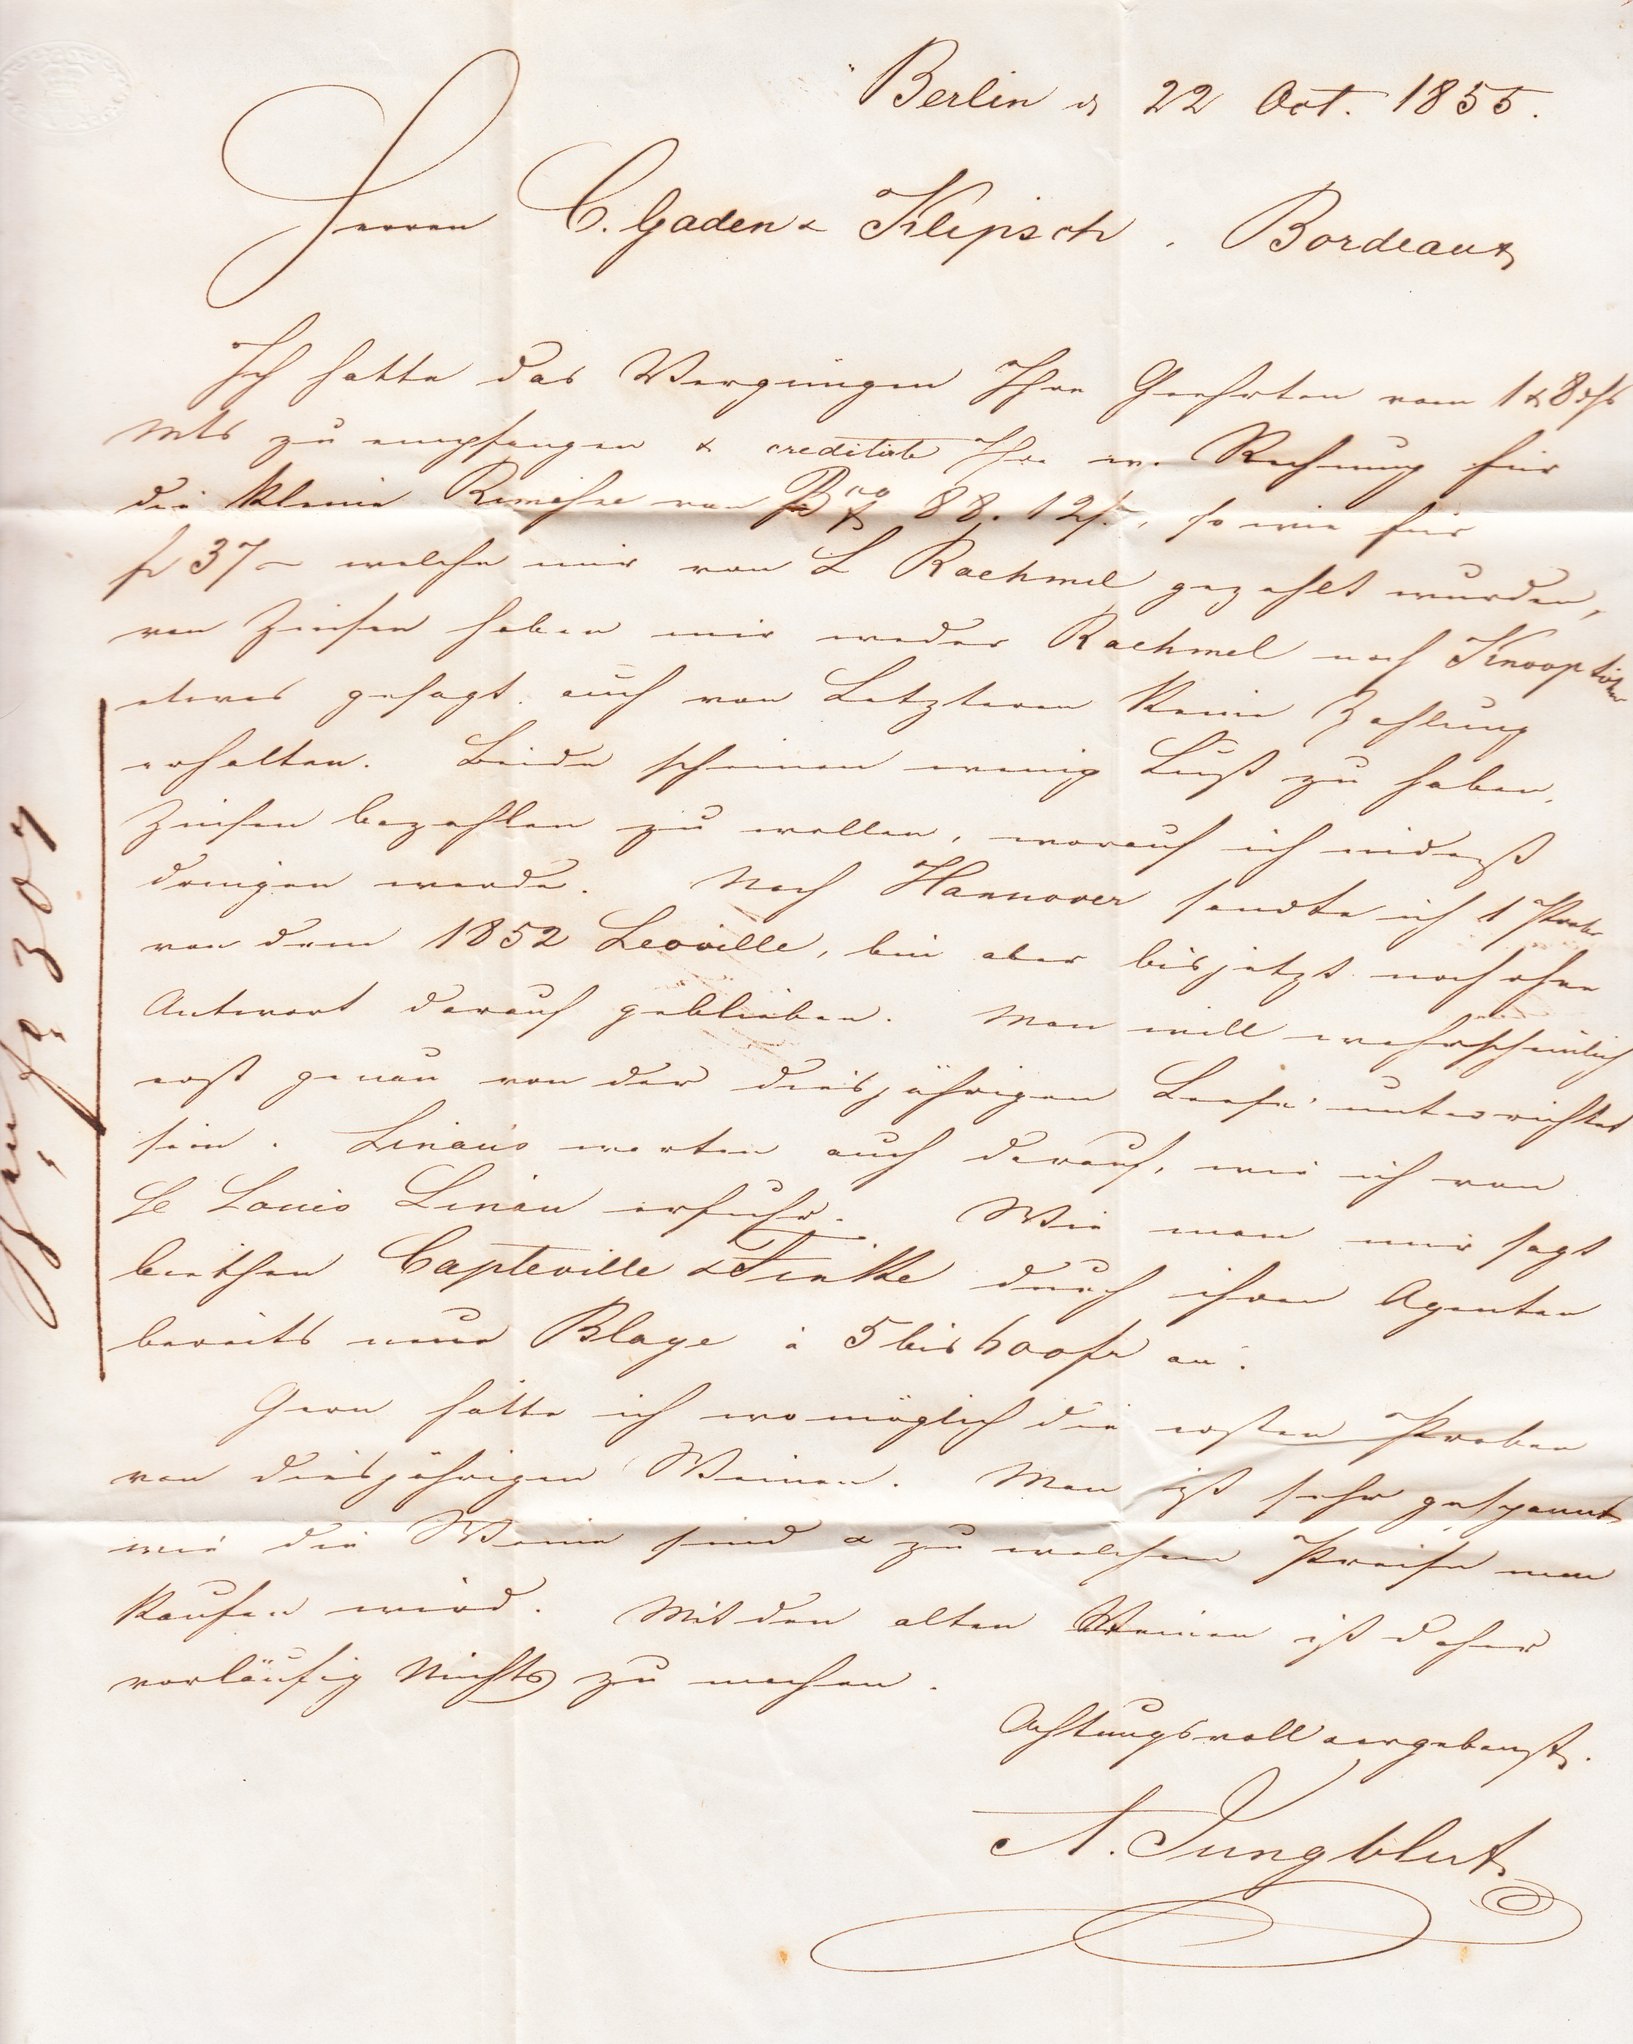 Berlin d 22 Oct. 1855.
Herren C. Gaden & Klipsch. Bordeaux
Ich hatte das Vergnügen Ihre Geehrten vom 1 & 8 dss
Mts zu empfangen & creditirte Ihre w. Rechnung für
die kleine Rimesse von Bco 88. 12/-, so wie für
37 – welche mir von L Rachmel gezahlt wurden,
von Zinsen haben mir weder Rachmel noch Knoop
etwas gesagt, auch von Letzteren keine Zahlung
erhalten. Beide scheinen wenig Lust zu haben,
Zinsen bezahlen zu wollen, worauf ich indeß
dringen werde. Nach Hannover sandte ich 1 Probe
von dem 1852 Leoville, bin aber bis jetzt noch ohne
Antwort darauf geblieben. Man will wahrscheinlich
erst genau von der diesjährigen Leese unterrichtet
sein. Linaus warten auch darauf, wie ich von
Louis Linau erfuhr. Wie man mir sagt
biethen Capteville & Finke durch ihren Agenten
bereits neue Blaye à 5 bis 600 fr an.
Gern hätte ich wo möglich die ersten Proben
von diesjährigen Weinen. Man ist sehr gespannt
wie die Weine sind & zu welchem Preise man
kaufen wird. Mit den alten Weinen ist daher
vorläufig Nichts zu machen.
Achtungsvoll ergebenst.
A. Jungblut
307